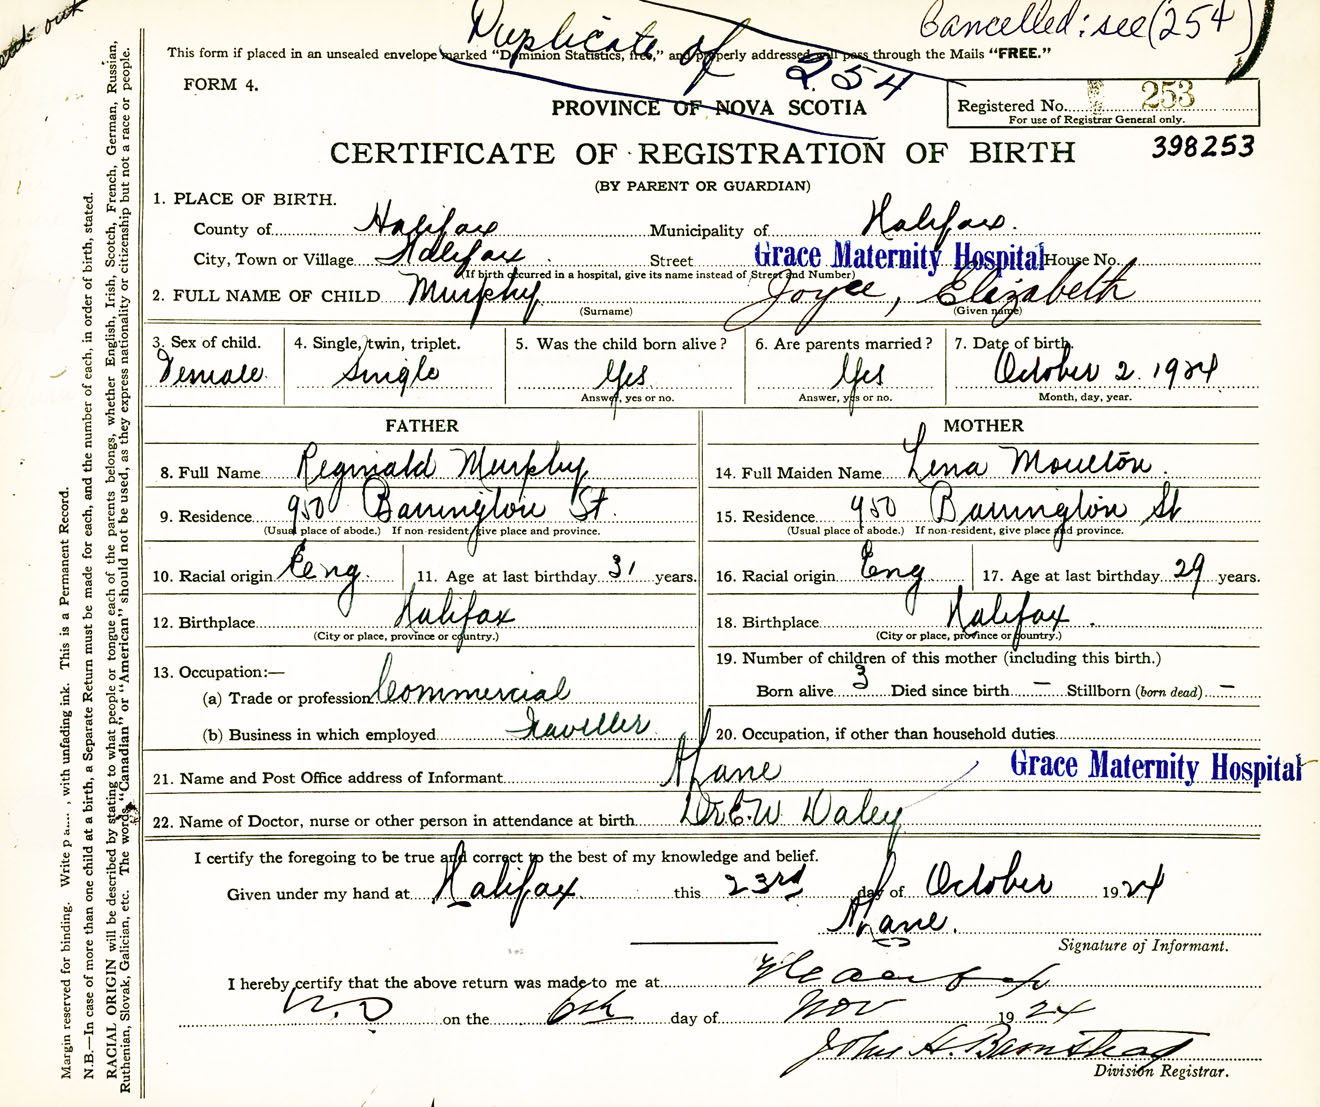 Duplicate of 254
Cancelled: see (254)
This form if placed in an unsealed envelope marked "Dominion Statistics, free," and properly addressed will pass through the Mails "FREE."
FORM 4.
PROVINCE OF NOVA SCOTIA
Registered No. 253
For use of Registrar General only.
398253
CERTIFICATE OF REGISTRATION OF BIRTH
(BY PARENT OR GUARDIAN)
1. PLACE OF BIRTH.
County of Halifax Municipality of Halifax.
City, Town or Village Halifax. Street Grace Maternity Hospital House No.
(If birth occurred in a hospital, give its name instead of Street and Number)
2. FULL NAME OF CHILD Murphy Joyce, Elizabeth
(Surname) (Given name)
3. Sex of child. 4. Single, twin, triplet. 5. Was the child born alive? 6. Are parents married? 7. Date of birth.
Female Single Yes Yes October 2. 1924
Answer, yes or no. Answer, yes or no. Month, day, year.
FATHER
8. Full Name Reginald Murphy
9. Residence 950 Barrington St.
(Usual place of abode.) If non-resident, give place and province.
10. Racial origin Eng. 11. Age at last birthday 31 years.
12. Birthplace Halifax
(City or place, province or country.)
13. Occupation:—
(a) Trade or profession Commercial
(b) Business in which employed Traveller
MOTHER
14. Full Maiden Name Lena Moulton.
15. Residence 950 Barrington St
(Usual place of abode.) If non-resident, give place and province.
16. Racial origin Eng 17. Age at last birthday 29 years.
18. Birthplace Halifax.
(City or place, province or country.)
19. Number of children of this mother (including this birth.)
Born alive 3 Died since birth — Stillborn (born dead) —
20. Occupation, if other than household duties
21. Name and Post Office address of Informant A Lane Grace Maternity Hospital
22. Name of Doctor, nurse or other person in attendance at birth Dr E. W. Daley
I certify the foregoing to be true and correct to the best of my knowledge and belief.
Given under my hand at Halifax this 23rd day of October 1924
A Lane.
Signature of Informant.
I hereby certify that the above return was made to me at Halifax
N.S on the 6th day of Nov 1924
John H. Barnstead
Division Registrar.
Margin reserved for binding. Write with unfading ink. This is a Permanent Record.
N.B.—In case of more than one child at a birth, a Separate Return must be made for each, and the number of each, in order of birth, stated.
RACIAL ORIGIN will be described by stating to what people or tongue each of the parents belongs, whether English, Irish, Scotch, French, German, Russian,
Ruthenian, Slovak, Galician, etc. The words "Canadian" or "American" should not be used, as they express nationality or citizenship but not a race or people.